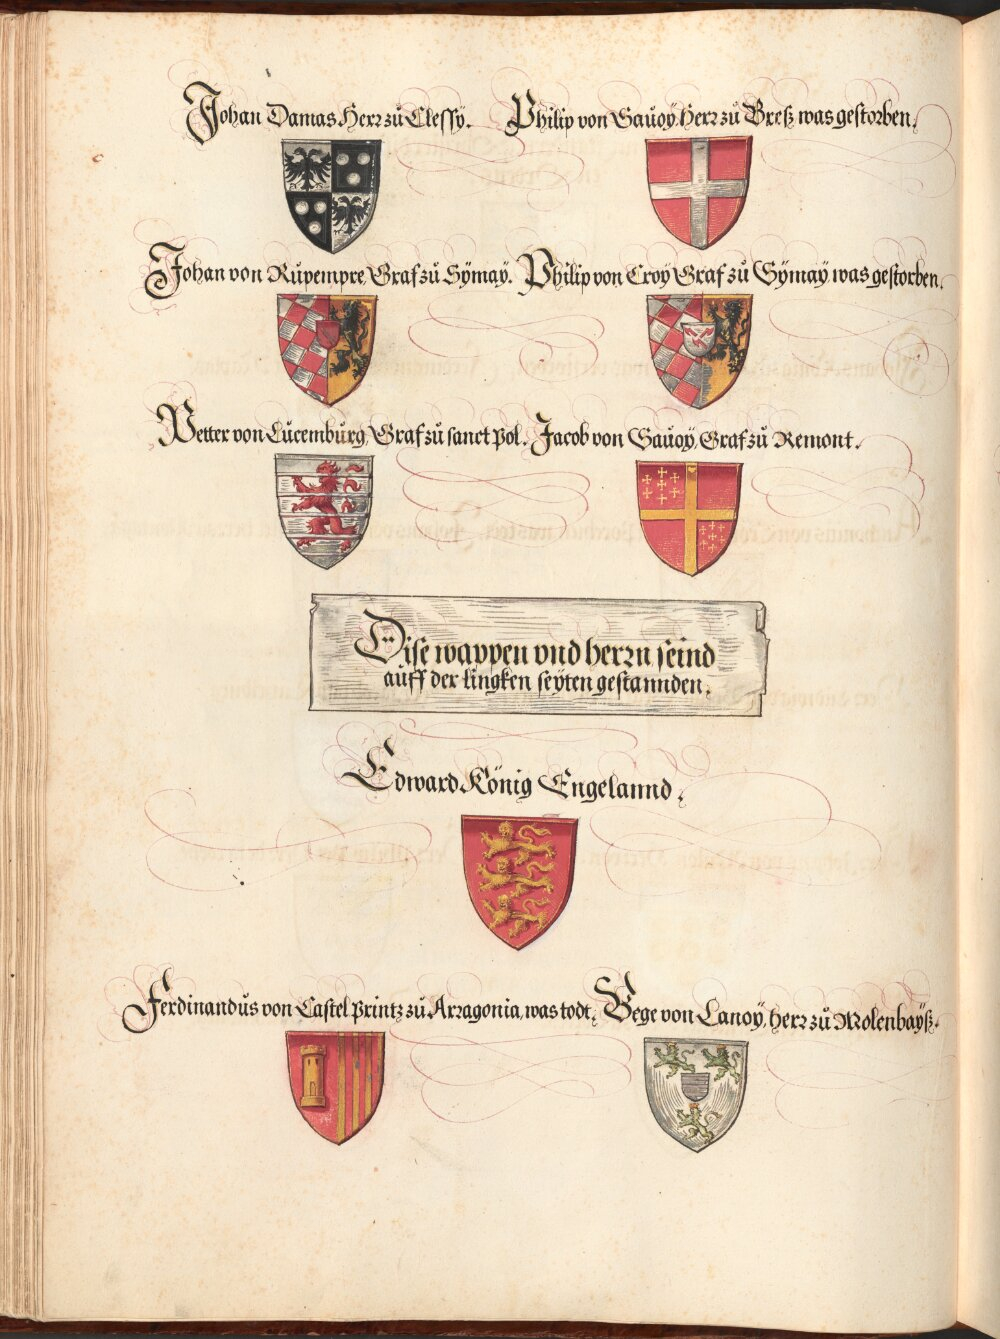 Johan Damas Herr zů Clessÿ.
Philip von Sauoÿ, Herr zů Breß was gestorben.
Johan von Rupempre, Graf zů Sÿmaÿ.
Philip von Croÿ Graf zů Sÿmaÿ was gestorben.
Petter von Lucemburg, Graf zů sanct Pol.
Jacob von Sauoÿ, Graf zů Remont.
Dise wappen vnd herrn seind
auff der lingken seÿten gestannden.
Edward König Engelannd.
Ferdinandus von Castel printz zů Arragonia, was todt.
Bege von Lanoÿ, herr zů Molenbaÿß.